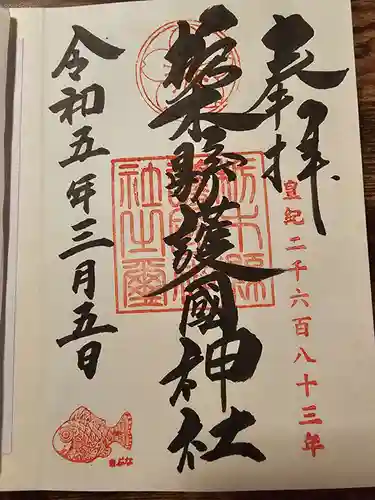 奉拝
皇紀二千六百八十三年
栃木縣護國神社
令和五年三月五日